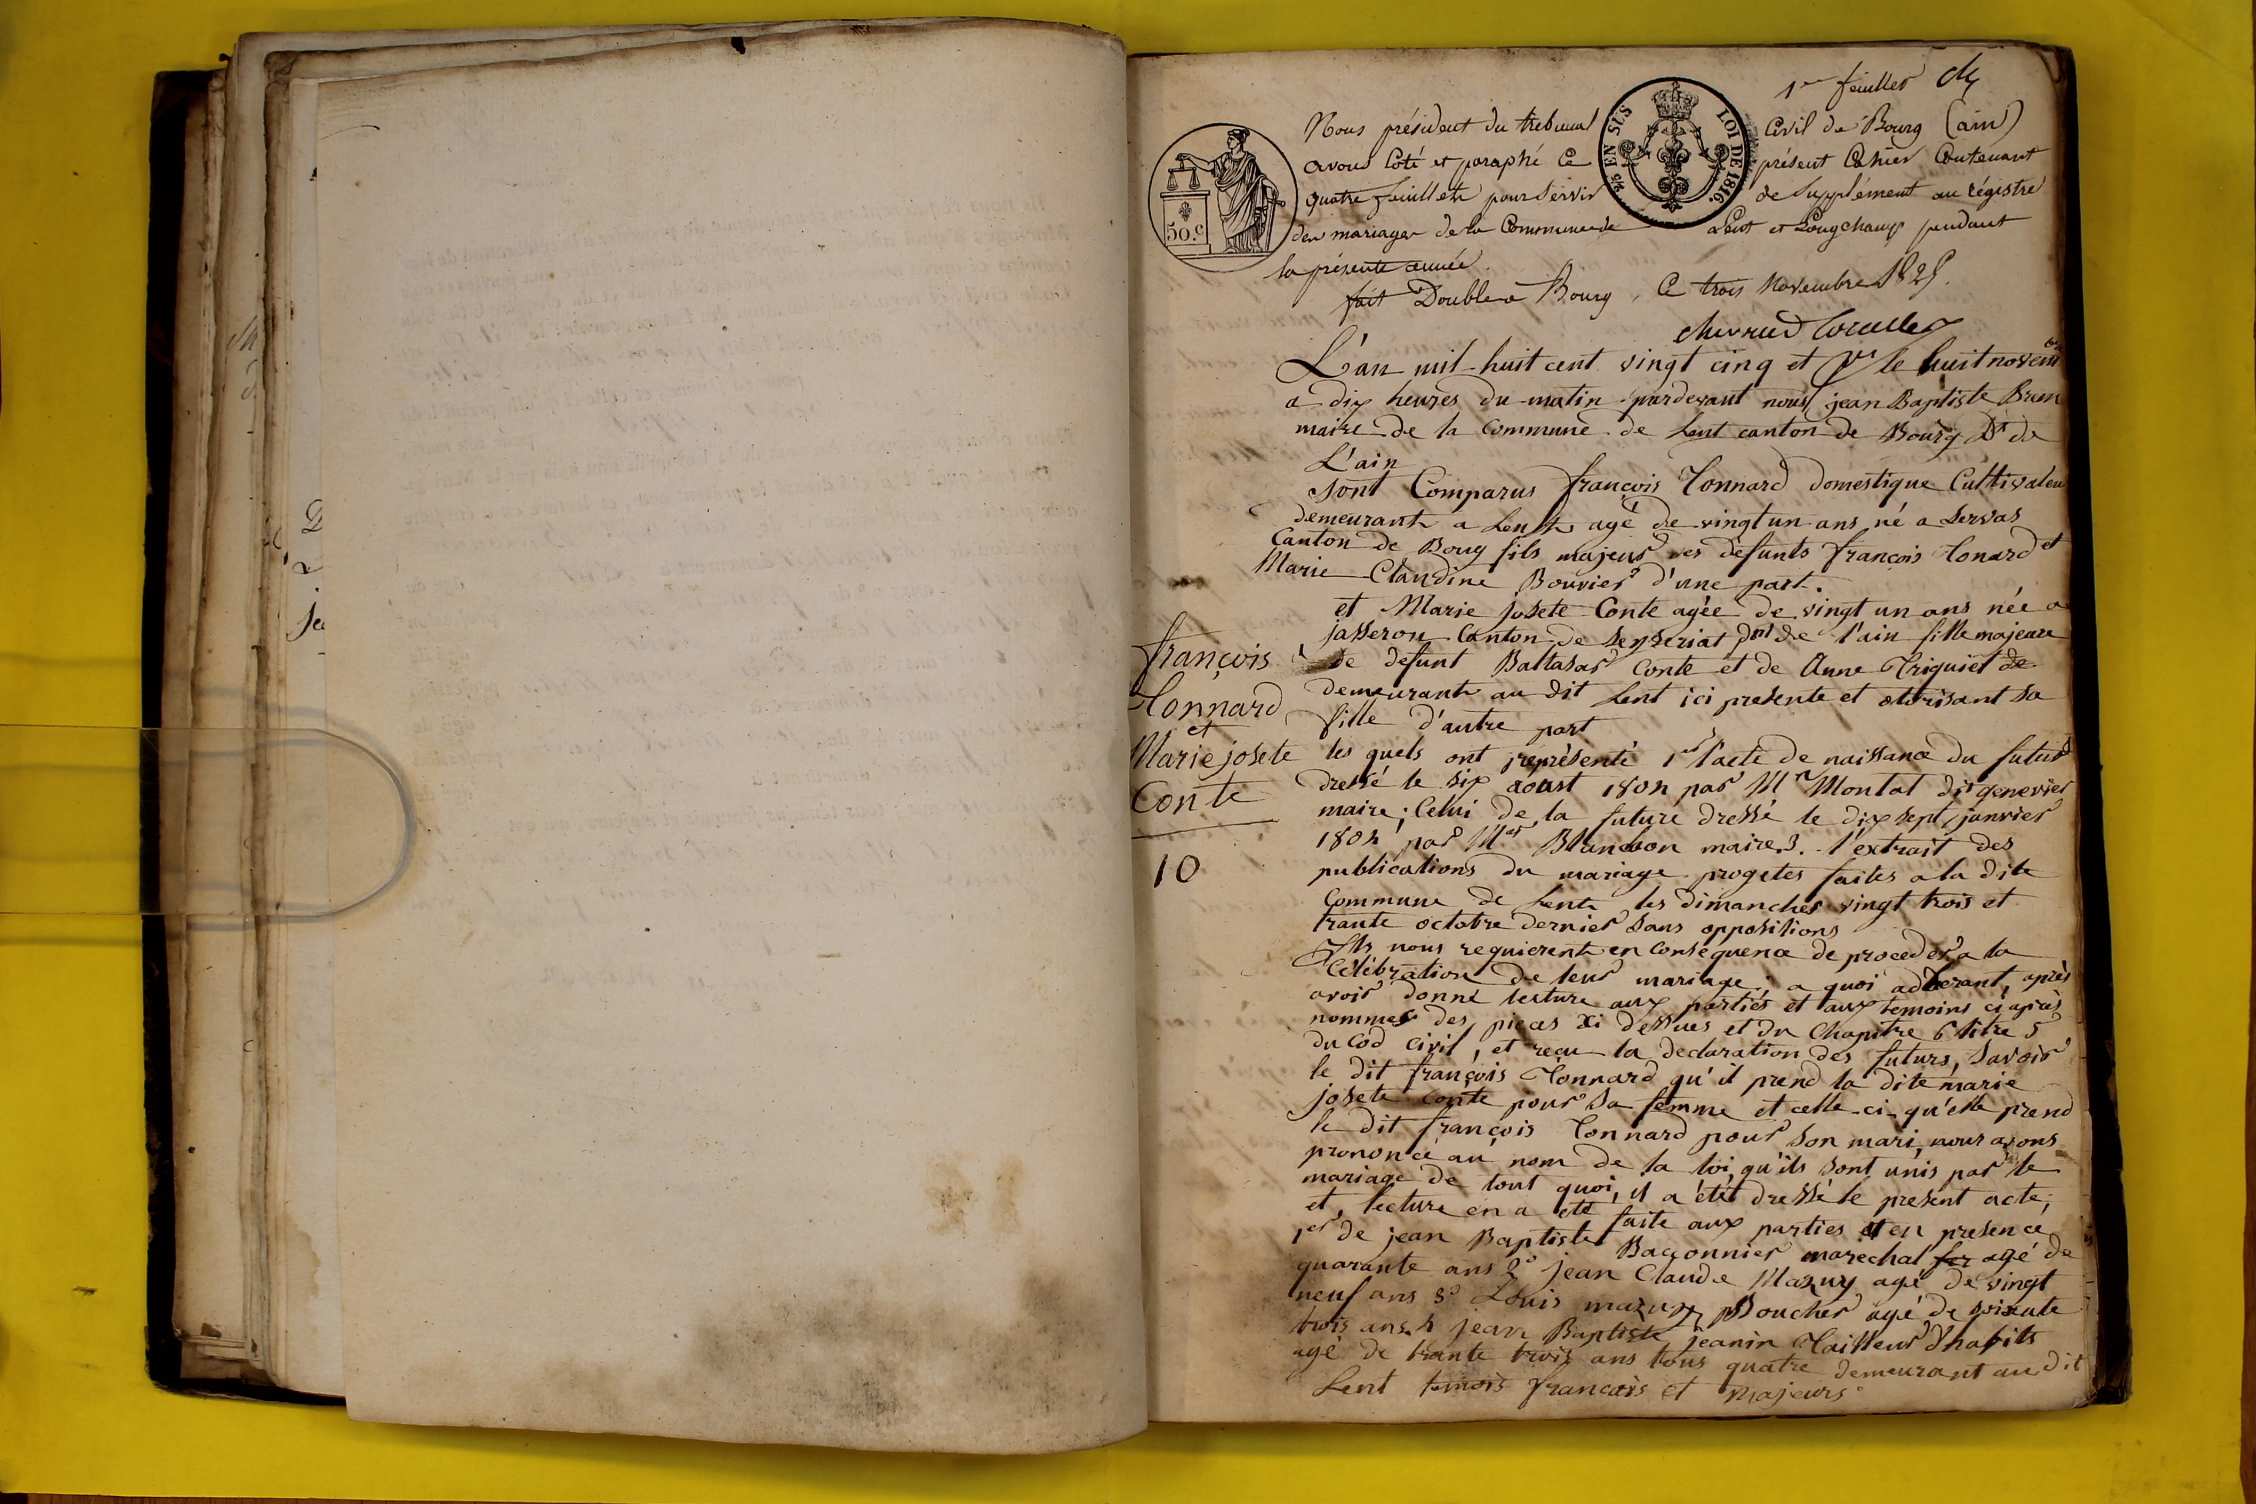 1er feuillet
Nous président du tribunal civil de Bourg (ain)
avons Coté et paraphé Ce présent Cahier Contenant
quatre feuillets pour Servir de Supplément au régistre
des mariages de la Commune de Lent et Longchamp pendant
la présente année.
fait Double a Bourg, Ce trois Novembre 1825.
50.c
5/5 EN SUS
LOI DE 1816.
L'an mil huit cent vingt cinq et le huit novem bre
a dix heures du matin pardevant nous jean Baptiste Brun
maire de la Commune de Lent canton de Bourg Dt de
L'ain
Sont Comparus françois Tonnard domestique Cultivateu
demeurant a Lent agé de vingt un ans né a Servas
Canton de Bourg fils majeur des defunts françois Tonard et
Marie Claudine Bouvier d'une part.
et Marie Josete Conte agée de vingt un ans née a
jasseron Canton de Seyzeriat Dnt de l'ain fille majeure
de defunt Baltasar Conte et de Anne Triquiet de
demeurante au dit Lent ici presente et otorisant sa
fille d'autre part
les quels ont représenté 1er l'acte de naissance du futur
dressé le six aoust 1804 par Mr Montal dit genevier
maire; Celui de la future dressé le dix sept janvier
1804 par Mer Blanchon maire 3. l'extrait des
publications du mariage progetes faites a la dite
Commune de Lent les dimanches vingt trois et
trante octobre dernier sans oppositions
Ils nous requierent en Consequence de proceder a la
Célébration de leur mariage; a quoi adherant, après
avoir donné lecture aux parties et aux temoins ci après
nommes des pieces xi dessues et du Chapitre 6 titre 5
du Cod civil, et reçu la declaration des futurs, Savoir
le dit françois Tonnard qu'il prend la dite marie
josete Conte pour sa femme et celle-ci qu'elle prend
le dit françois Tonnard pour Son mari, nous avons
prononcé au nom de la loi qu'ils sont unis par le
mariage de tout quoi, il a été dressé le present acte;
et, lecture en a été faite aux parties et en presence
1er de jean Baptiste Baconnier marechal fer agé de
quarante ans 2° jean Claude Mazuy agé de vingt
neuf ans 3° Louis mazuy Boucher agé de soixente
trois ans. 4 jean Baptiste jeanin Tailleur d'habits
agé de trante trois ans tous quatre demeurant au dit
Lent temois francais et majeurs
françois
Tonnard
et
Marie josete
Conte
10